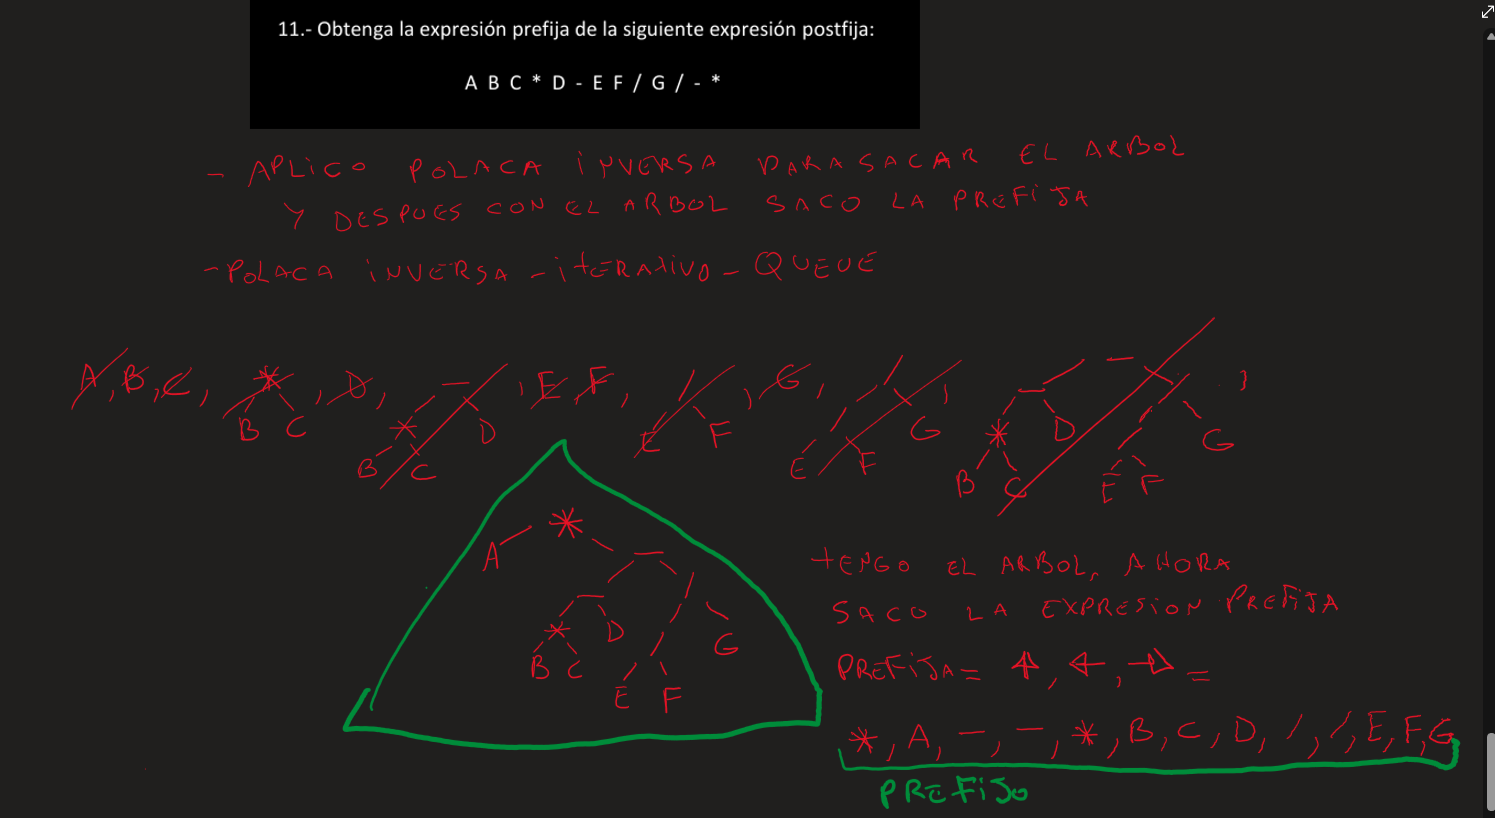 11.- Obtenga la expresión prefija de la siguiente expresión postfija:
A B C * D - E F / G / - *
- APLiCO POLACA iNVERSA PARA SACAR EL ARBOL
Y DESPUES CON EL ARBOL SACO LA PREFiJA
- POLACA iNVERSA - iTERATiVO - QUEUE
A, B, C, *, D, -, E, F, /, G, /, - ,
B C * D E F / G - / G
B C E F * D / G
B C E F
*
A -
- /
* D / G
B C E F
TENGO EL ARBOL, AHORA
SACO LA EXPRESION PREFiJA
PREFiJA = ↑, ←, → =
*, A, -, -, *, B, C, D, /, /, E, F, G
PREFiJO